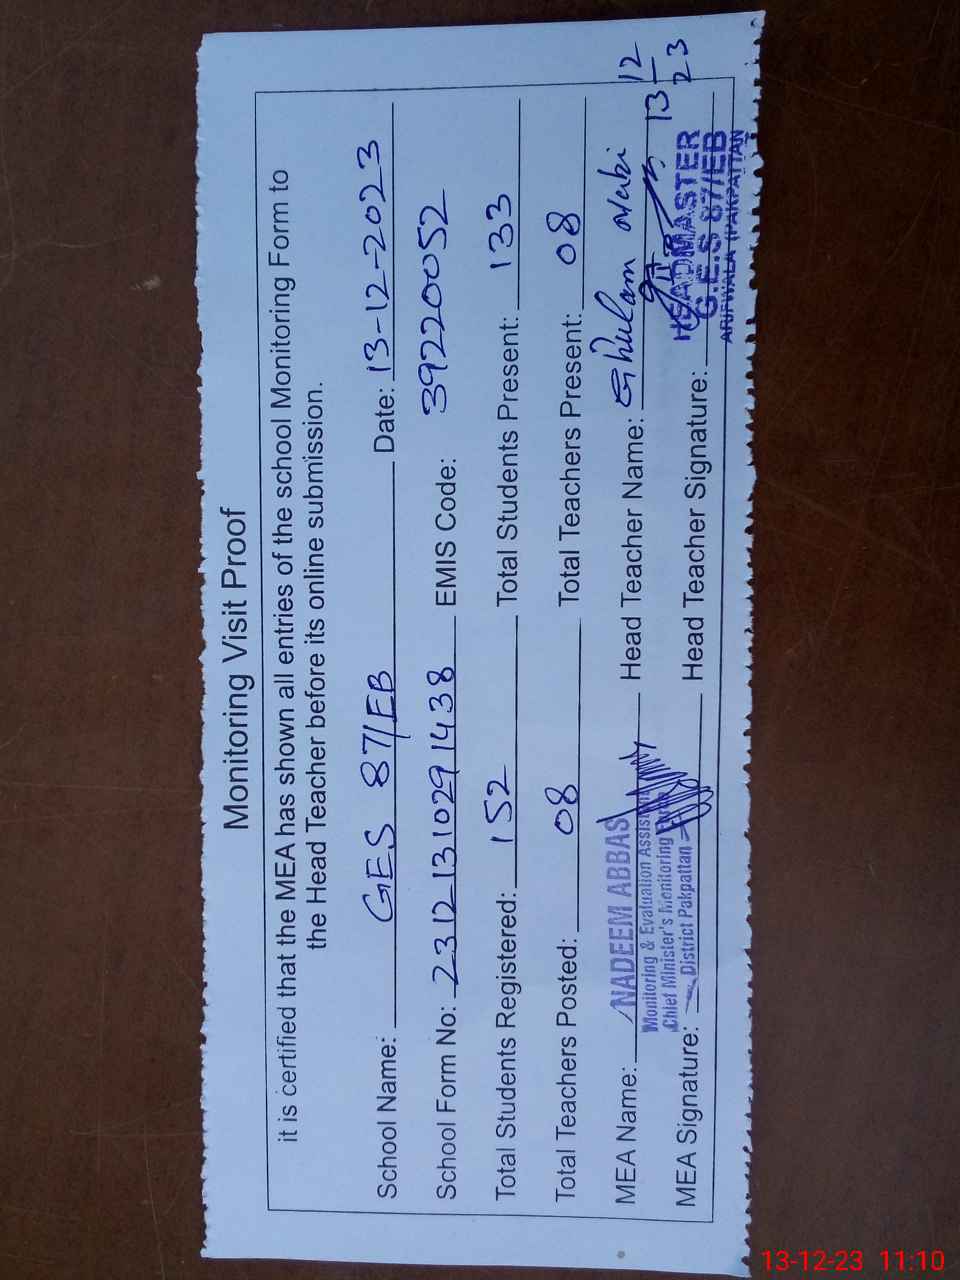 Monitoring Visit Proof
it is certified that the MEA has shown all entries of the school Monitoring Form to
the Head Teacher before its online submission.
School Name: GES 87/EB Date: 13-12-2023
School Form No: 23121310291438 EMIS Code: 39220052
Total Students Registered: 152 Total Students Present: 133
Total Teachers Posted: 08 Total Teachers Present: 08
MEA Name: NADEEM ABBAS Head Teacher Name: Ghulam Nabi
Monitoring & Evaluation Assistant
Chief Minister's Monitoring Force
District Pakpattan
MEA Signature: Head Teacher Signature:
13 12
23
HEADMASTER
G.E.S 87/EB
ARIFWALA (PAKPATTAN
13-12-23 11:10